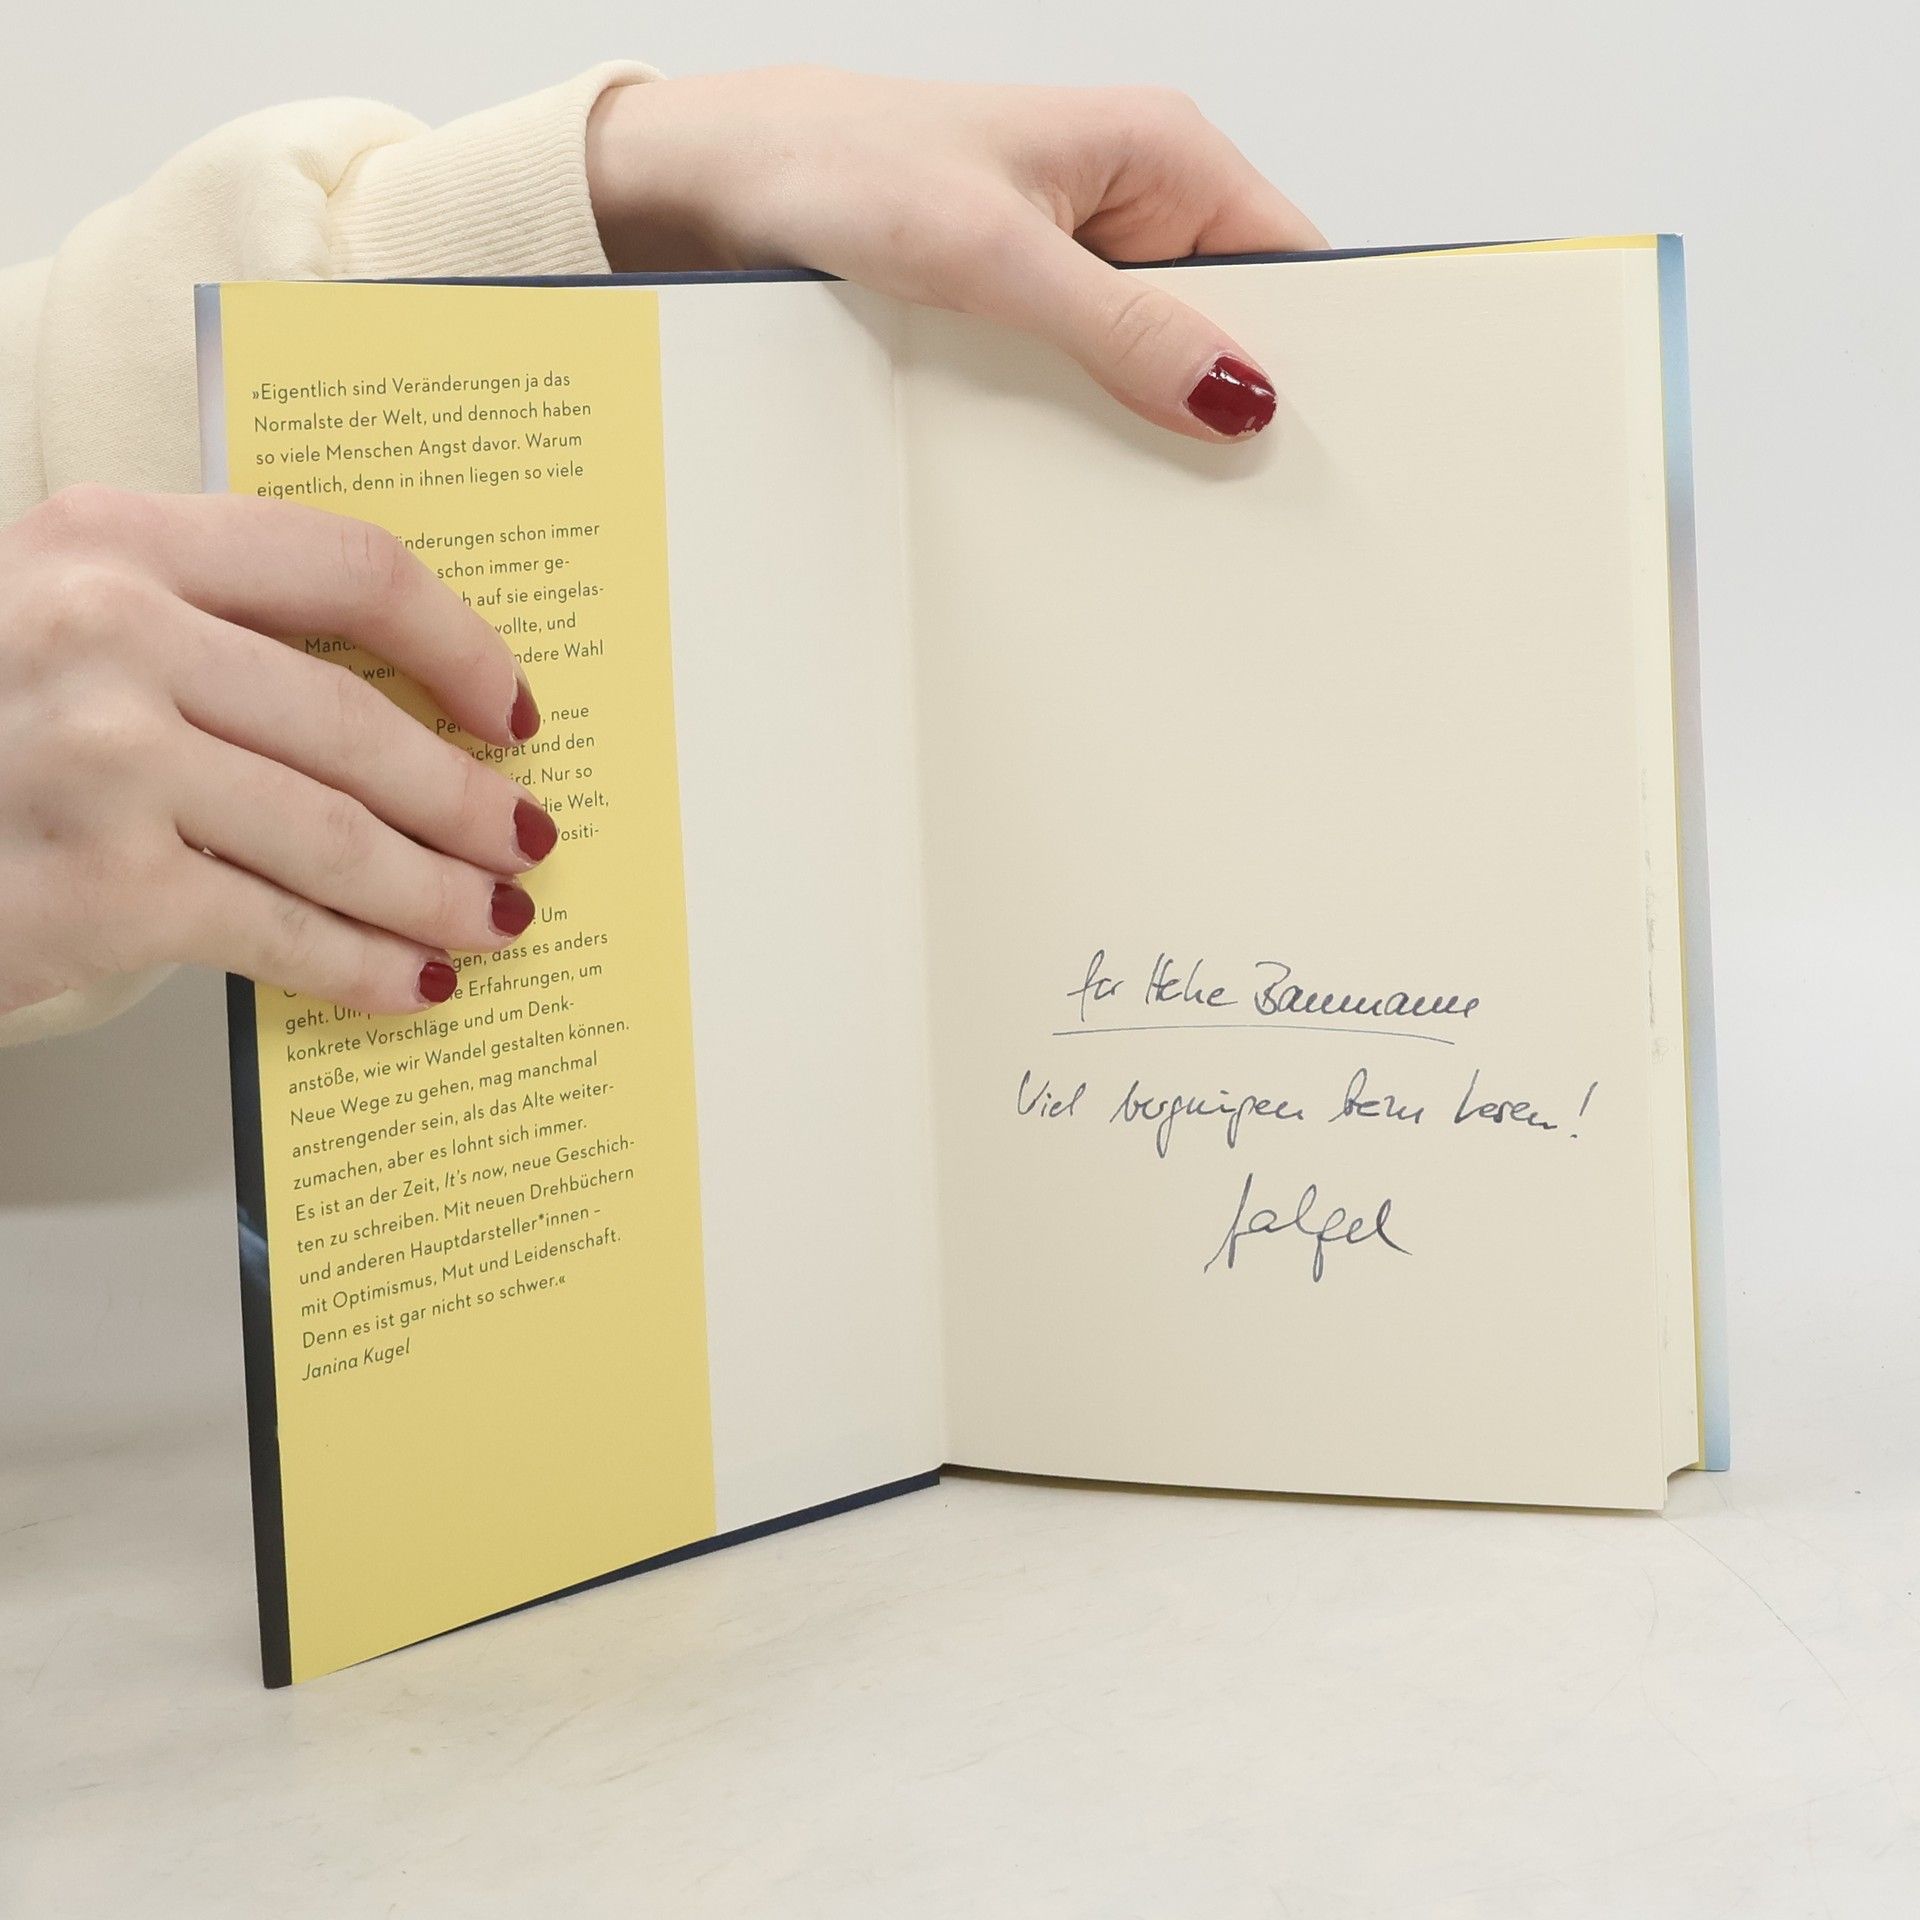 »Eigentlich sind Veränderungen ja das
Normalste der Welt, und dennoch haben
so viele Menschen Angst davor. Warum
eigentlich, denn in ihnen liegen so viele
änderungen schon immer
schon immer ge-
h auf sie eingelas-
vollte, und
Manc ndere Wahl
weil
Per , neue
ückgrat und den
ird. Nur so
die Welt,
Positi-
: Um
gen, dass es anders
e Erfahrungen, um
geht. Um
konkrete Vorschläge und um Denk-
anstöße, wie wir Wandel gestalten können.
Neue Wege zu gehen, mag manchmal
anstrengender sein, als das Alte weiter-
zumachen, aber es lohnt sich immer.
Es ist an der Zeit, It's now, neue Geschich-
ten zu schreiben. Mit neuen Drehbüchern
und anderen Hauptdarsteller*innen –
mit Optimismus, Mut und Leidenschaft.
Denn es ist gar nicht so schwer.«
Janina Kugel
für Heike Baumann
Viel Vergnügen beim Lesen!